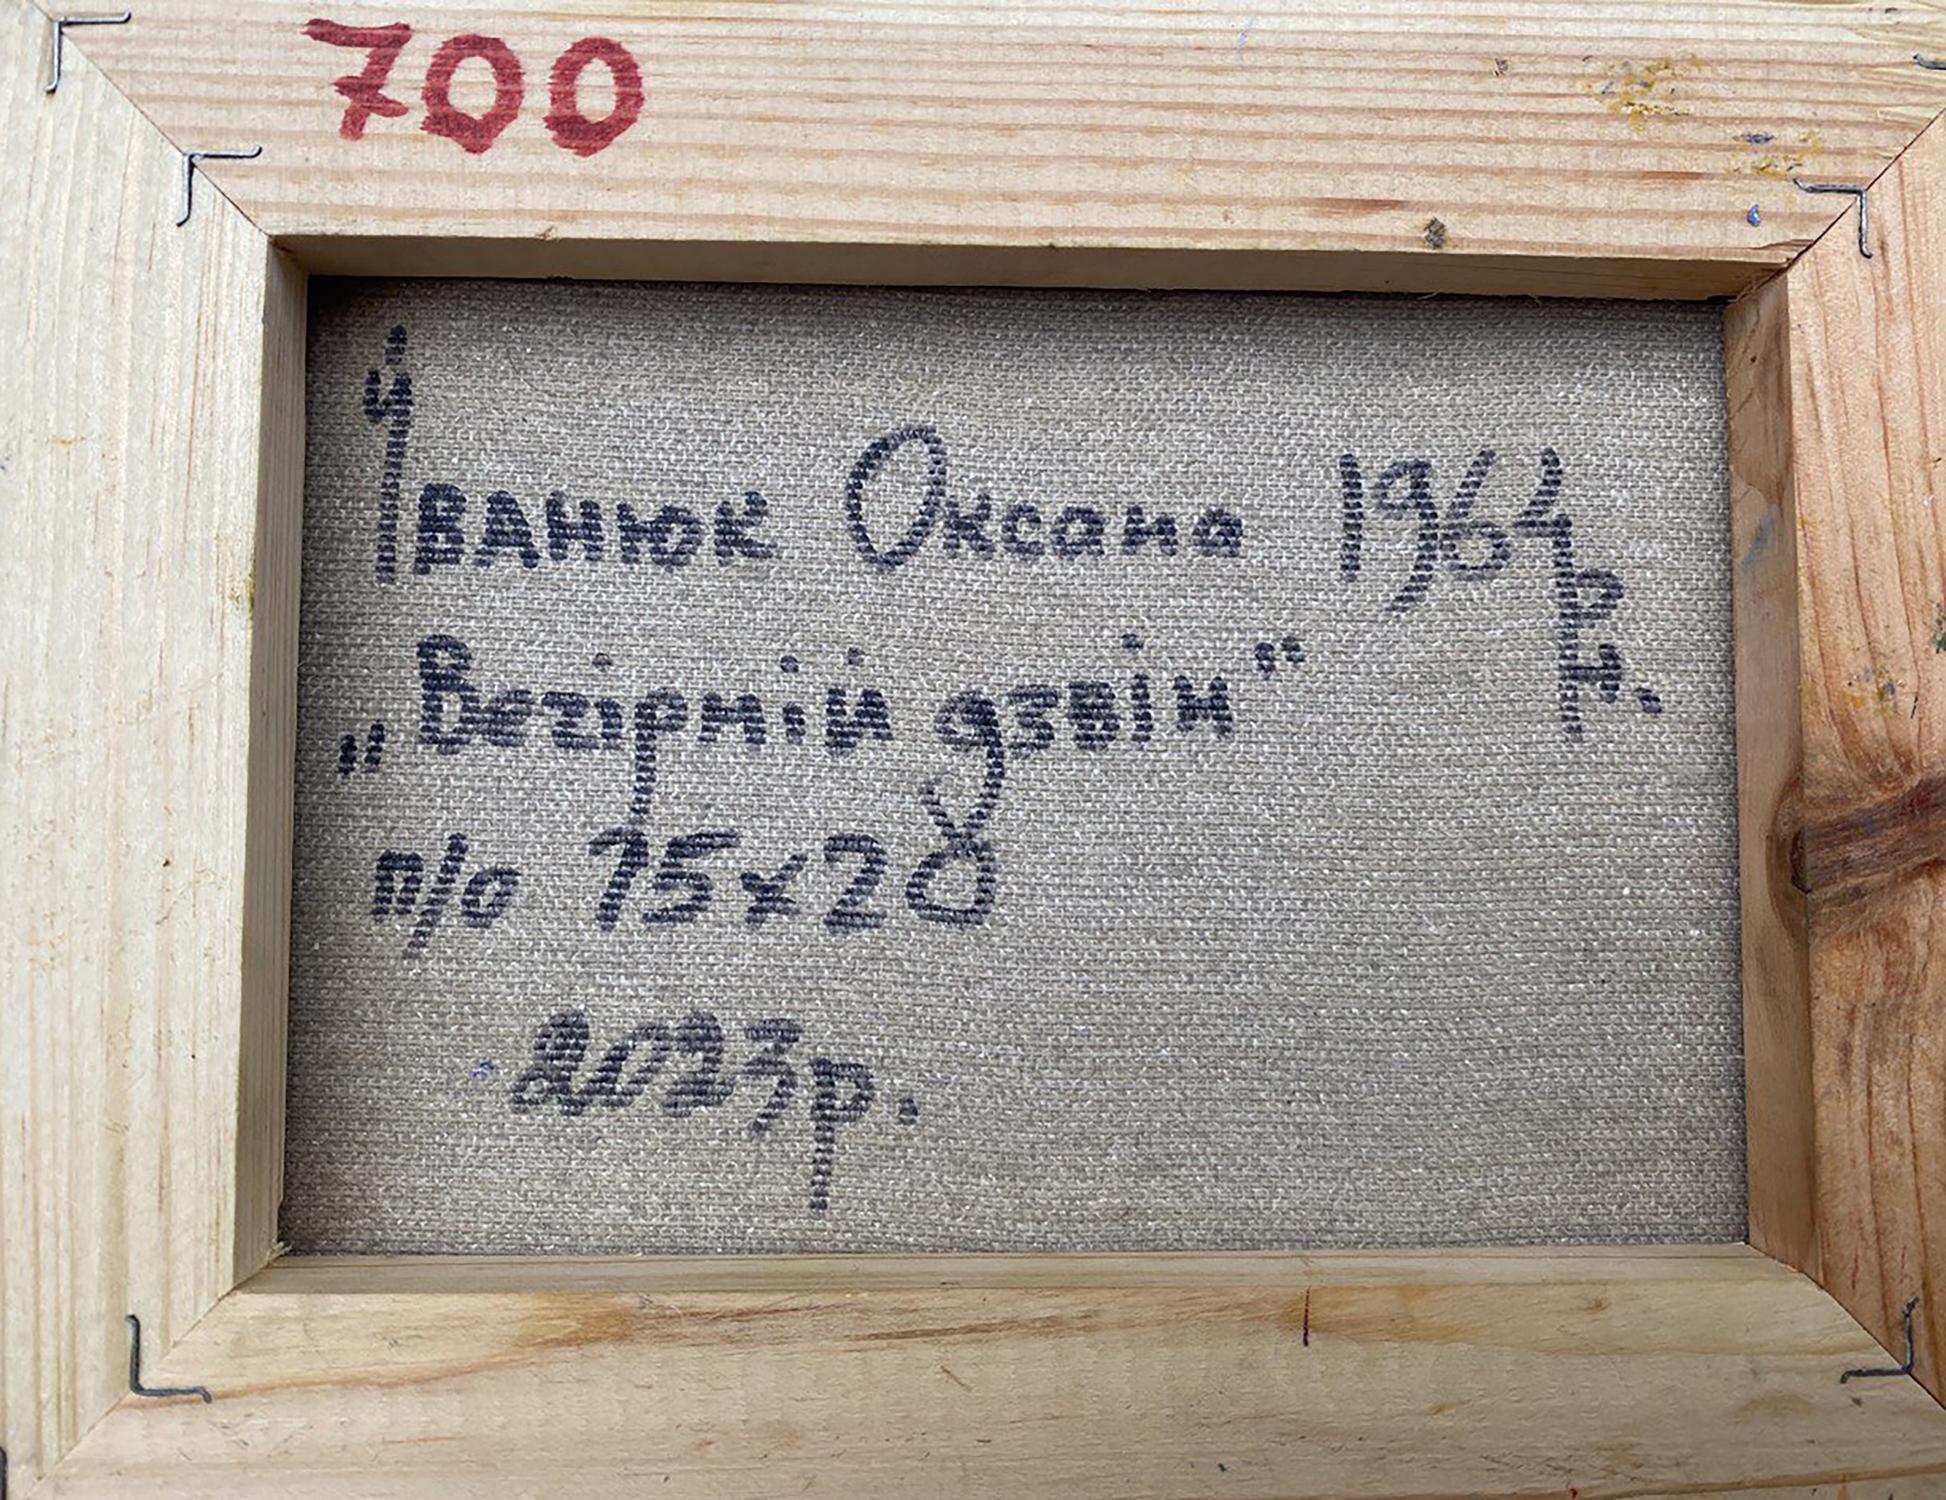 700
Іванюк Оксана 1964 р.н.
„Вечірній дзвін"
п/о 15х28
2023р.